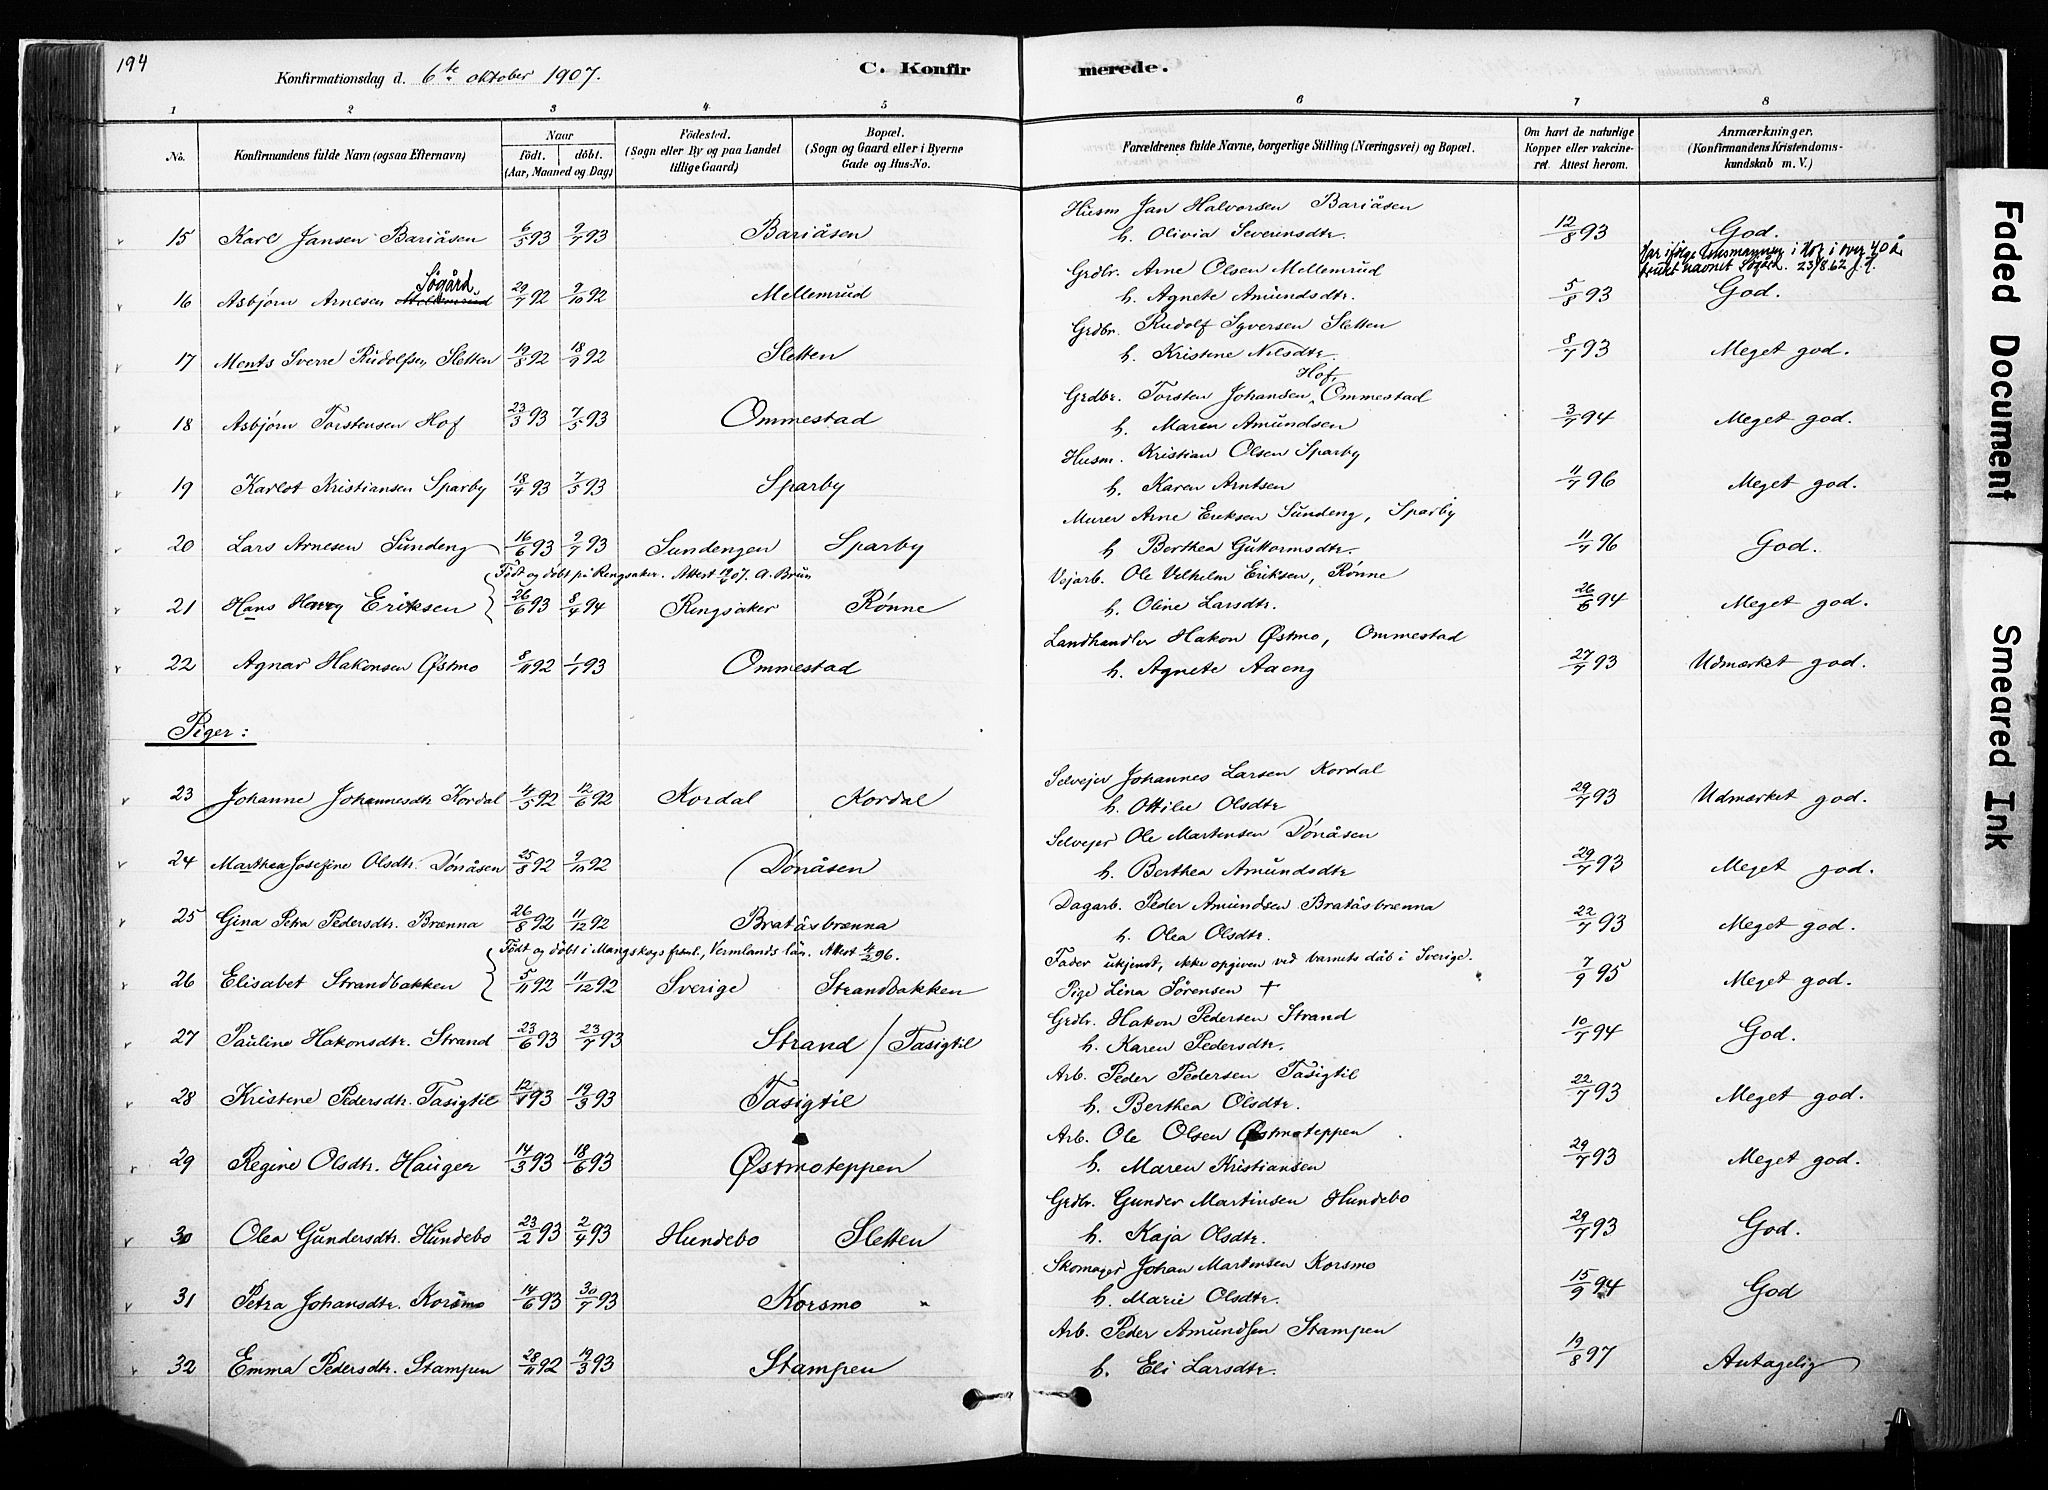 194
Konfirmationsdag d. 6te oktober 1907.
C. Konfirmerede.
1 2 3 4 5 6 7 8
No. Konfirmandens fulde Navn (ogsaa Efternavn) Naar födt. döbt. (Aar, Maaned og Dag) Födested. (Sogn eller By og paa Landet tillige Gaard) Bopæl. (Sogn og Gaard eller i Byerne Gade og Hus-No.) Forældrenes fulde Navne, borgerlige Stilling (Næringsvei) og Bopæl. Om havt de naturlige Kopper eller vakcineret. Attest herom. Anmærkninger. (Konfirmandens Kristendomskundskab m. V.)
15 Karl Jansen Bariåsen 6/5 93 9/7 93 Bariåsen Husm Jan Halvorsen Bariåsen
h. Olivia Severinsdtr. 12/8 93 God.
Har ifølge lensmannen i Hof i over 40 år
brukt navnet Søgård. 23/8.62
16 Asbjørn Arnesen Mellemrud Søgård 29/7 92 9/10 92 Mellemrud Grdbr. Arne Olsen Mellemrud
h. Agnete Amundsdtr. 5/8 93 God.
17 Monts Sverre Rudolfsen Sletten 19/8 92 18/9 92 Sletten Grdbr. Rudolf Syversen Sletten
h. Kristine Nilsdtr. 8/7 93 Meget god.
18 Asbjørn Torstensen Hof 23/3 93 7/5 93 Ommestad Grdbr. Torsten Johansen Hof, Ommestad
h. Maren Amundsen 3/7 94 Meget god.
19 Karlot Kristiansen Sparby 18/4 93 7/5 93 Sparby Husm. Kristian Olsen Sparby
h. Karen Arntsen 11/7 96 Meget god.
20 Lars Arnesen Sundeng 16/6 93 9/7 93 Sundengen Sparby Murer Arne Eriksen Sundeng, Sparby
h Berthea Guttormsdtr. 11/7 96 God.
Født og døbt på Ringsaker. Attest 07. A. Brun
21 Hans Harry Eriksen 26/6 93 8/4 94 Ringsaker Rønne Vejarb. Ole Vilhelm Eriksen, Rønne
h. Oline Larsdtr. 26/6 94 Meget god.
22 Agnar Hakonsen Østmo 8/11 92 1/1 93 Ommestad Landhandler Hakon Østmo, Ommestad
h. Agnete Aaeng 27/7 93 Udmærket god.
Piger:
23 Johanne Johannesdtr Kordal 4/5 92 12/6 92 Kordal Kordal Selvejer Johannes Larsen Kordal
h. Ottilie Olsdtr 29/7 93 Udmærket god.
24 Marthea Josefine Olsdtr. Dønåsen 25/8 92 9/10 92 Dønåsen Selvejer Ole Martinsen Dønåsen
h. Berthea Amundsdtr 29/7 93 Meget god.
25 Gina Petra Pedersdtr. Brænna 26/8 92 11/12 92 Bratåsbrænna Dagarb. Peder Amundsen Bratåsbrænna
h. Olea Olsdtr. 22/7 93 Meget god.
Født og døbt i Mangskogs fsml., Vermlands län. Attest 4/2 96.
26 Elisabet Strandbakken 5/11 92 11/12 92 Sverige Strandbakken Fader ukjendt, ikke opgiven ved barnets dåb i Sverige.
Pige Lina Sørensen + 7/9 95 Meget god.
27 Pauline Hakonsdtr. Strand 23/6 93 23/7 93 Strand / Tasigtil Grdbr. Hakon Pedersen Strand
h. Karen Pedersdtr. 10/7 94 God.
28 Kristine Pedersdtr. Tasigtil 12/1 93 19/3 93 Tasigtil Arb. Peder Pedersen Tasigtil
h. Berthea Olsdtr. 22/7 93 Meget god.
29 Regine Olsdtr. Hauger 14/3 93 18/6 93 Østmoteppen Arb. Ole Olsen Østmoteppen
h. Maren Kristiansen 29/7 93 Meget god.
30 Olea Gundersdtr. Hundebo 23/2 93 2/4 93 Hundebo Sletten Grdbr. Gunder Martinsen Hundebo
h. Kaja Olsdtr. 29/7 93 God.
31 Petra Johansdtr. Korsmo 14/6 93 30/7 93 Korsmo Skomager Johan Martinsen Korsmo
h. Marie Olsdtr. 15/9 94 God
32 Emma Pedersdtr. Stampen 28/11 92 19/3 93 Stampen Arb. Peder Amundsen Stampen
h. Eli Larsdtr. 19/8 97 Antagelig
Faded Document
Smeared Ink